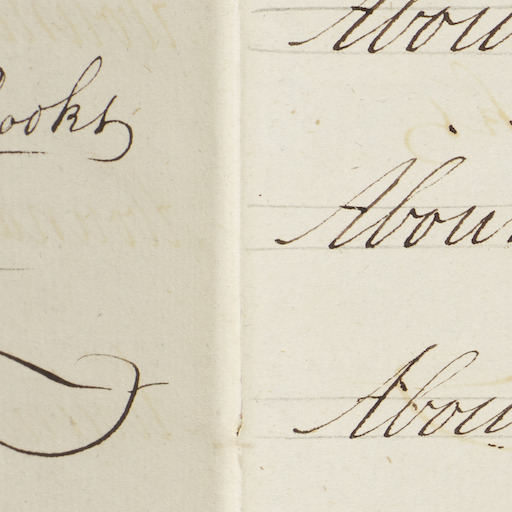 Books
Abou
Abou
Abou